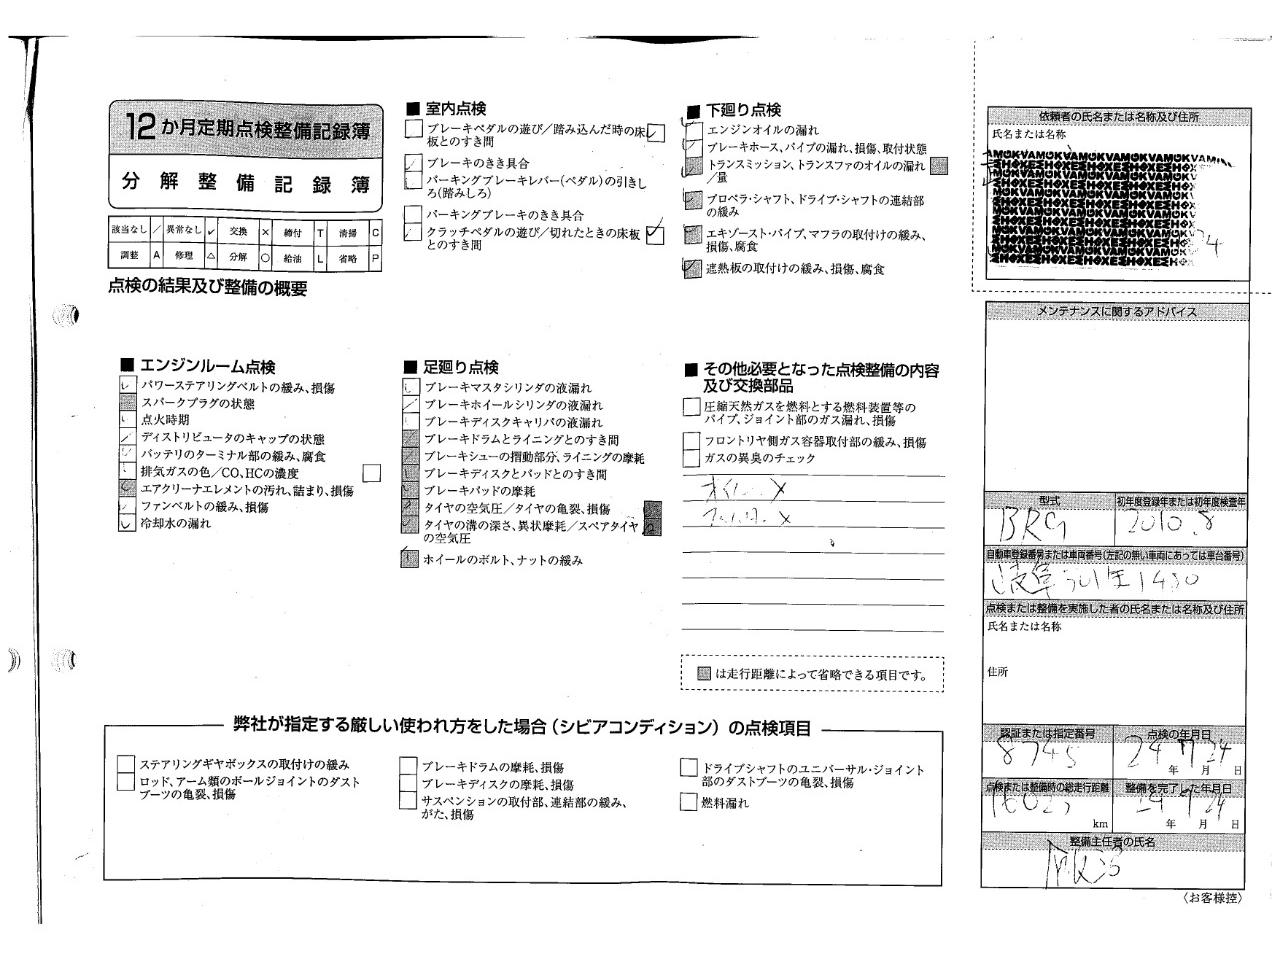 12か月定期点検整備記録簿
分解整備記録簿
該当なし ／ 異常なし ✓ 交換 × 締付 T 清掃 C
調整 A 修理 △ 分解 ○ 給油 L 省略 P
点検の結果及び整備の概要
■ 室内点検
ブレーキペダルの遊び／踏み込んだ時の床
板とのすき間
ブレーキのきき具合
パーキングブレーキレバー(ペダル)の引きし
ろ(踏みしろ)
パーキングブレーキのきき具合
クラッチペダルの遊び／切れたときの床板
とのすき間
■ 下廻り点検
エンジンオイルの漏れ
ブレーキホース、パイプの漏れ、損傷、取付状態
トランスミッション、トランスファのオイルの漏れ
／量
プロペラ・シャフト、ドライブ・シャフトの連結部
の緩み
エキゾースト・パイプ、マフラの取付けの緩み、
損傷、腐食
遮熱板の取付けの緩み、損傷、腐食
■ エンジンルーム点検
パワーステアリングベルトの緩み、損傷
スパークプラグの状態
点火時期
ディストリビュータのキャップの状態
バッテリのターミナル部の緩み、腐食
排気ガスの色／CO、HCの濃度
エアクリーナエレメントの汚れ、詰まり、損傷
ファンベルトの緩み、損傷
冷却水の漏れ
■ 足廻り点検
ブレーキマスタシリンダの液漏れ
ブレーキホイールシリンダの液漏れ
ブレーキディスクキャリパの液漏れ
ブレーキドラムとライニングとのすき間
ブレーキシューの摺動部分、ライニングの摩耗
ブレーキディスクとパッドとのすき間
ブレーキパッドの摩耗
タイヤの空気圧／タイヤの亀裂、損傷
タイヤの溝の深さ、異状摩耗／スペアタイヤ
の空気圧
ホイールのボルト、ナットの緩み
■ その他必要となった点検整備の内容
及び交換部品
圧縮天然ガスを燃料とする燃料装置等の
パイプ、ジョイント部のガス漏れ、損傷
フロントリヤ側ガス容器取付部の緩み、損傷
ガスの異臭のチェック
は走行距離によって省略できる項目です。
弊社が指定する厳しい使われ方をした場合（シビアコンディション）の点検項目
ステアリングギヤボックスの取付けの緩み
ロッド、アーム類のボールジョイントのダスト
ブーツの亀裂、損傷
ブレーキドラムの摩耗、損傷
ブレーキディスクの摩耗、損傷
サスペンションの取付部、連結部の緩み、
がた、損傷
ドライブシャフトのユニバーサル・ジョイント
部のダストブーツの亀裂、損傷
燃料漏れ
依頼者の氏名または名称及び住所
氏名または名称
メンテナンスに関するアドバイス
型式 初年度登録年または初年度検査年
BRG 2010.8
自動車登録番号または車両番号(左記の無い車両にあっては車台番号)
点検または整備を実施した者の氏名または名称及び住所
氏名または名称
住所
認証または指定番号 点検の年月日
8745 24 年 7 月 24 日
点検または整備時の総走行距離 整備を完了した年月日
km 24 年 7 月 24 日
整備主任者の氏名
〈お客様控〉